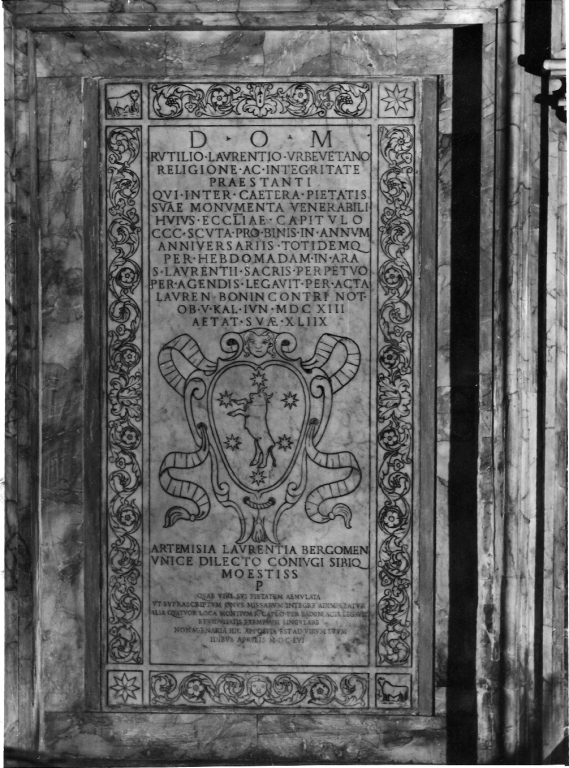 D · O · M
RVTILIO · LAVRENTIO · VRBEVETANO
RELIGIONE · AC · INTEGRITATE
PRAESTANTI
QVI · INTER · CAETERA · PIETATIS
SVAE MONVMENTA VENERABILI
HVIVS · ECCLIAE · CAPITVLO
CCC · SCVTA · PRO · BINIS · IN · ANNVM
ANNIVERSARIIS · TOTIDEMQ
PER · HEBDOMADAM · IN · ARA
S · LAVRENTII · SACRIS · PERPETVO
PER · AGENDIS · LEGAVIT · PER · ACTA
LAVREN · BONINCONTRI NOT
OB · V · KAL · IVN · MDCXIII
AETAT · SVÆ · XLIIX
ARTEMISIA LAVRENTIA BERGOMEN
VNICE DILECTO CONIVGI SIBIQ
MOESTISS
P
QVAE VIRI SVI PIETATEM AEMVLATA
VT SVPRASCRIPTVM ONVS MISSARVM INTEGRE
LOCA MONTIVM PER ACTA
EXEMPLVM SINGVLARE
NONAGENARIA HIC APPOSITA EST AD VIRVM SVVM
IDIBVS APRILIS MDCLVI